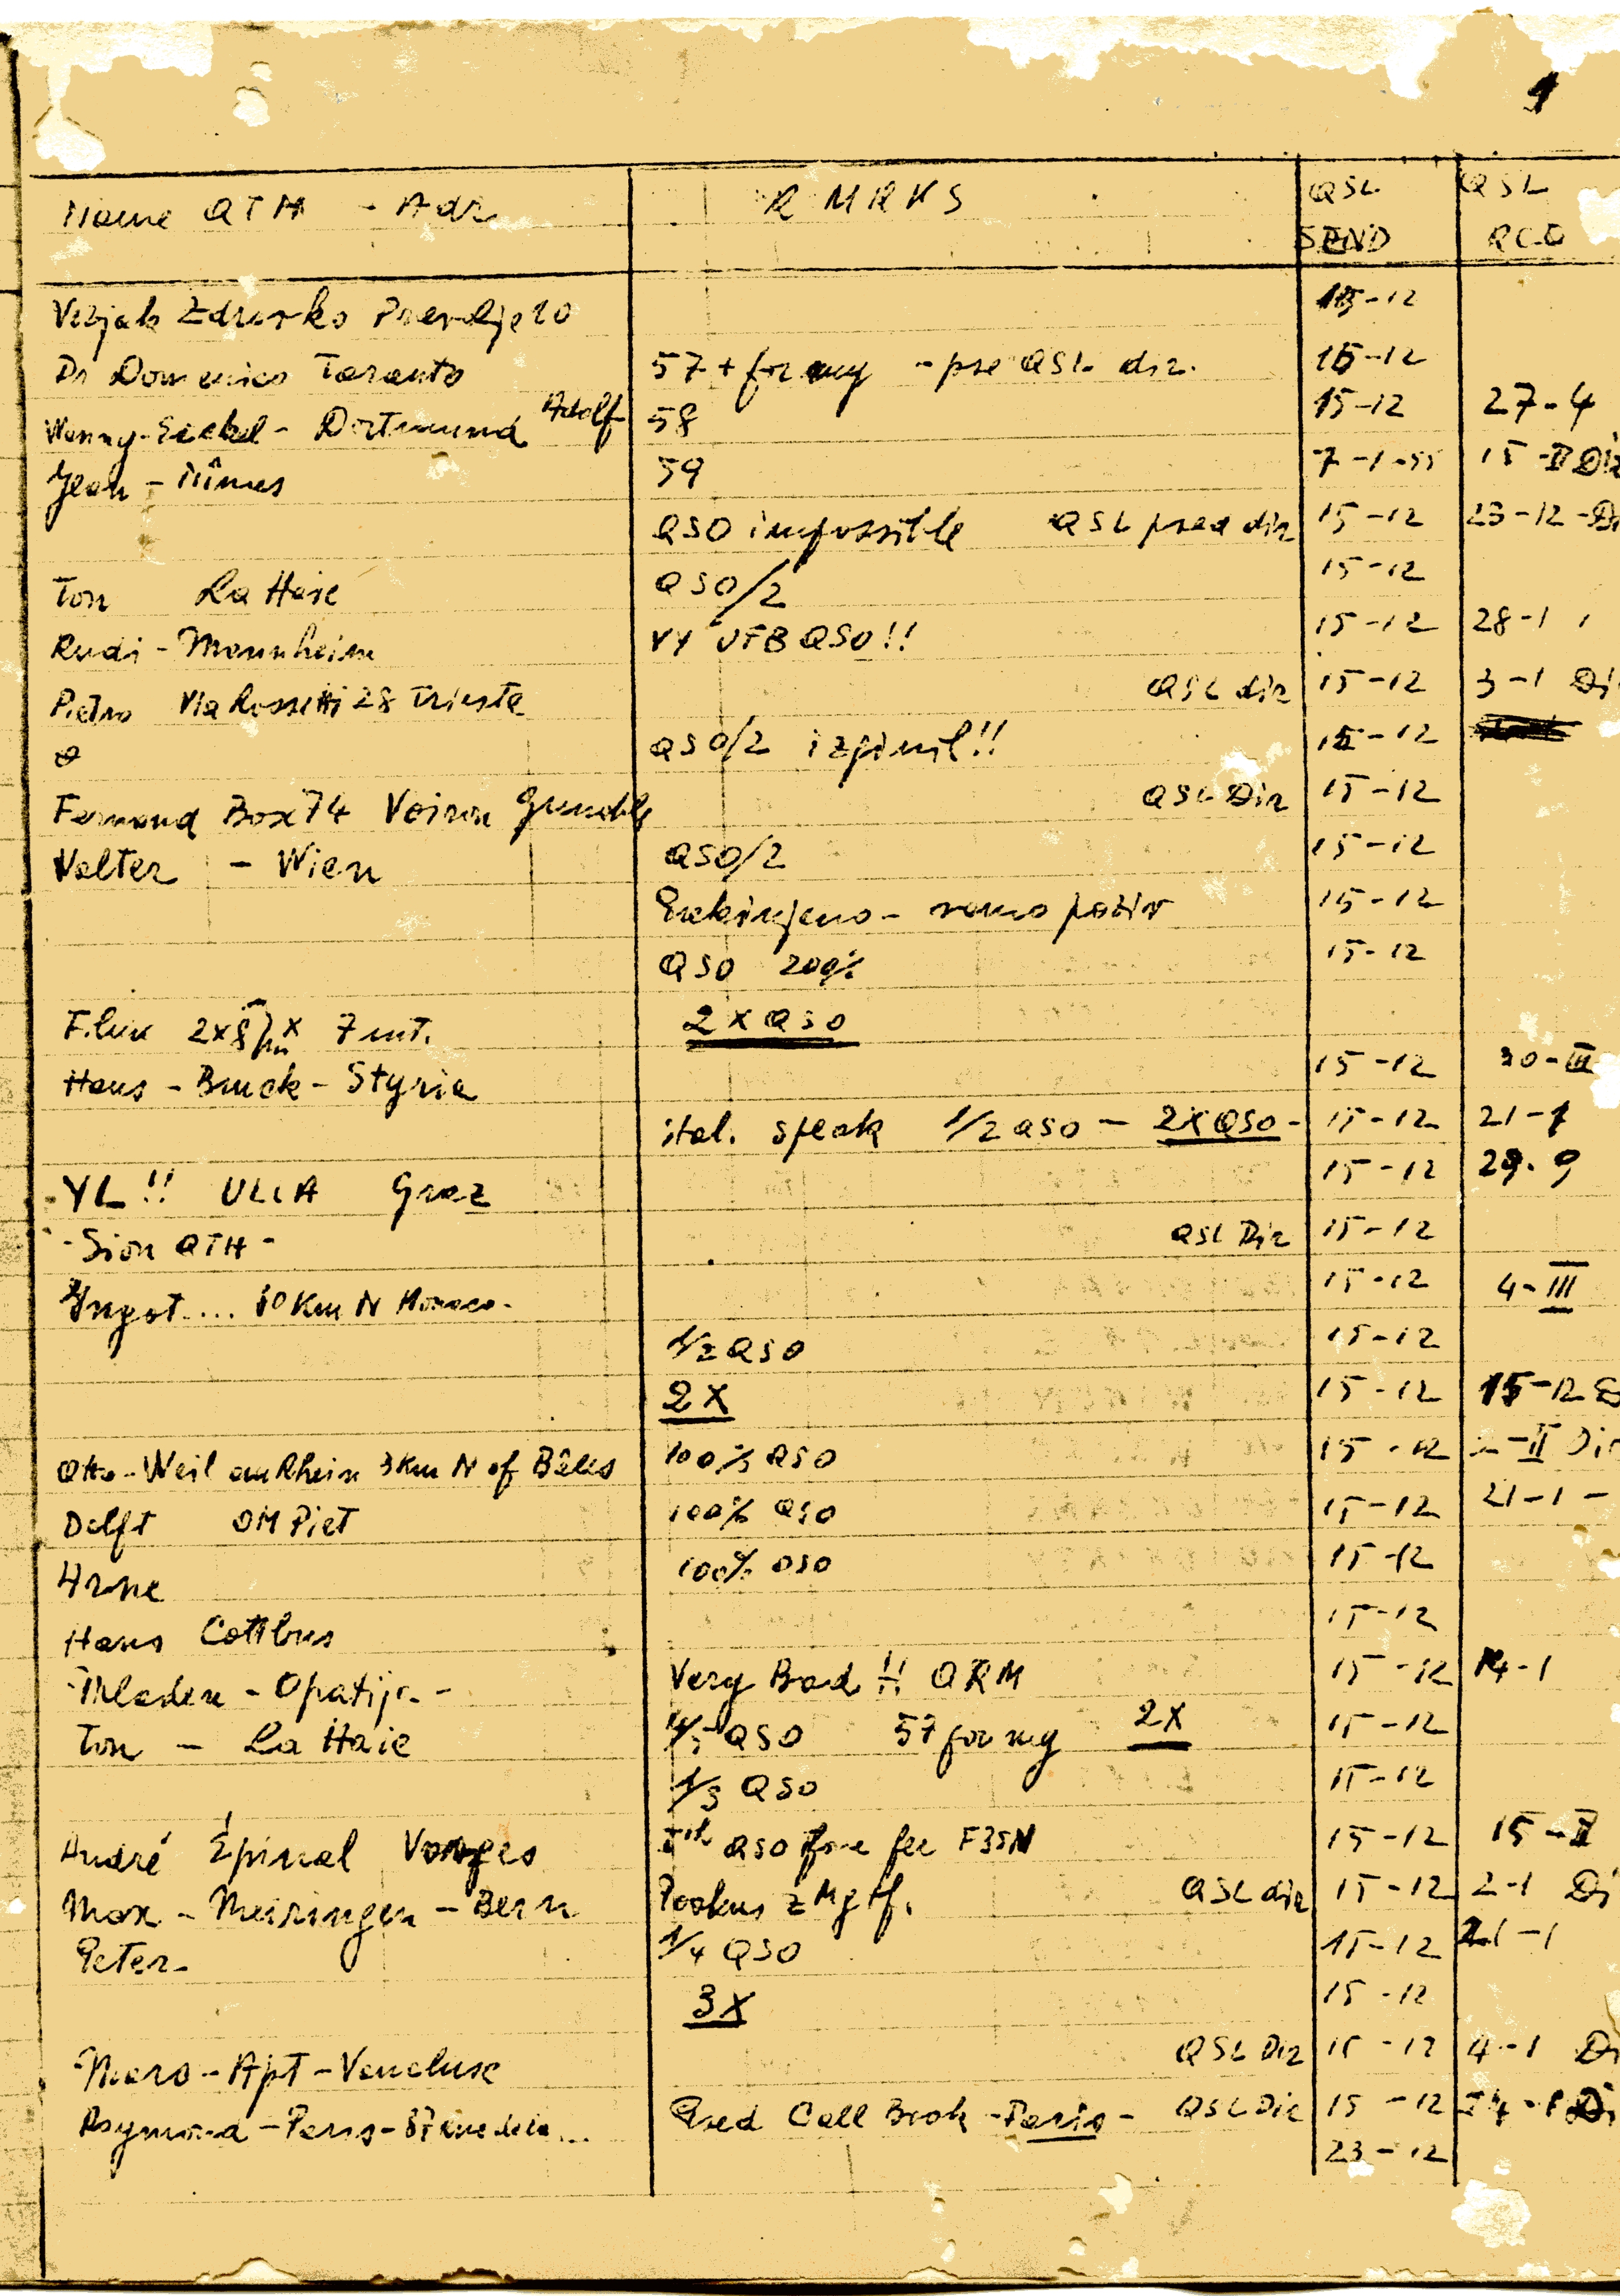 1
Name QTH - Adr RMRKS QSL SEND QSL RCD
Zdravko 15-12
Dr Domenico Taranto 57+ for my - pse QSL dir. 15-12
Dortmund Adolf 58 15-12 27-4
Jean - Nîmes 59 7-1-55 15-II Dir
QSO impossible QSL dir 15-12 23-12-Di
Ton La Haie QSO/2 15-12
Rudi - Mannheim VY UFB QSO!! 15-12 28-1
Pietro Via Rossetti 28 Trieste QSL dir 15-12 3-1 Di
QSO/2 izginil!! 15-12
Fernand Box 74 Voiron QSL Dir 15-12
Valter - Wien QSO/2 15-12
samo poziv 15-12
QSO 200% 15-12
2x8 7 mt. 2 X QSO
Hans - Bruck - Styria 15-12 30-III
ital. speak 1/2 QSO - 2X QSO - 15-12 21-1
YL!! ULLA Graz 15-12 29.9
- Sion QTH - QSL Dir 15-12
10 Km N Monaco - 15-12 4-III
1/2 QSO 15-12
2X 15-12 15-12
Otto - Weil am Rhein 3 Km N of Bâles 100% QSO 15-12 -II Dir
Delft OM Piet 100% QSO 15-12 21-1 -
Arne 100% QSO 15-12
Hans Cottbus 15-12
Mladen - Opatija - Very Bad!! QRM 15-12 14-1
Ton - La Haie QSO 57 for my 2X 15-12
1/3 QSO 15-12
André Épinal Vosges QSO for fer F3SN 15-12 15-II
Max - Meiringen - Bern QSL dir 15-12 2-1 Di
Peter - 1/4 QSO 15-12 21-1
3X 15-12
Maro - Apt - Vaucluse QSL Dir 15-12 4-1 Di
Raymond - Paris - 87 Rue de la ... Call Book - Paris - QSL Dir 15-12 Di
23-12